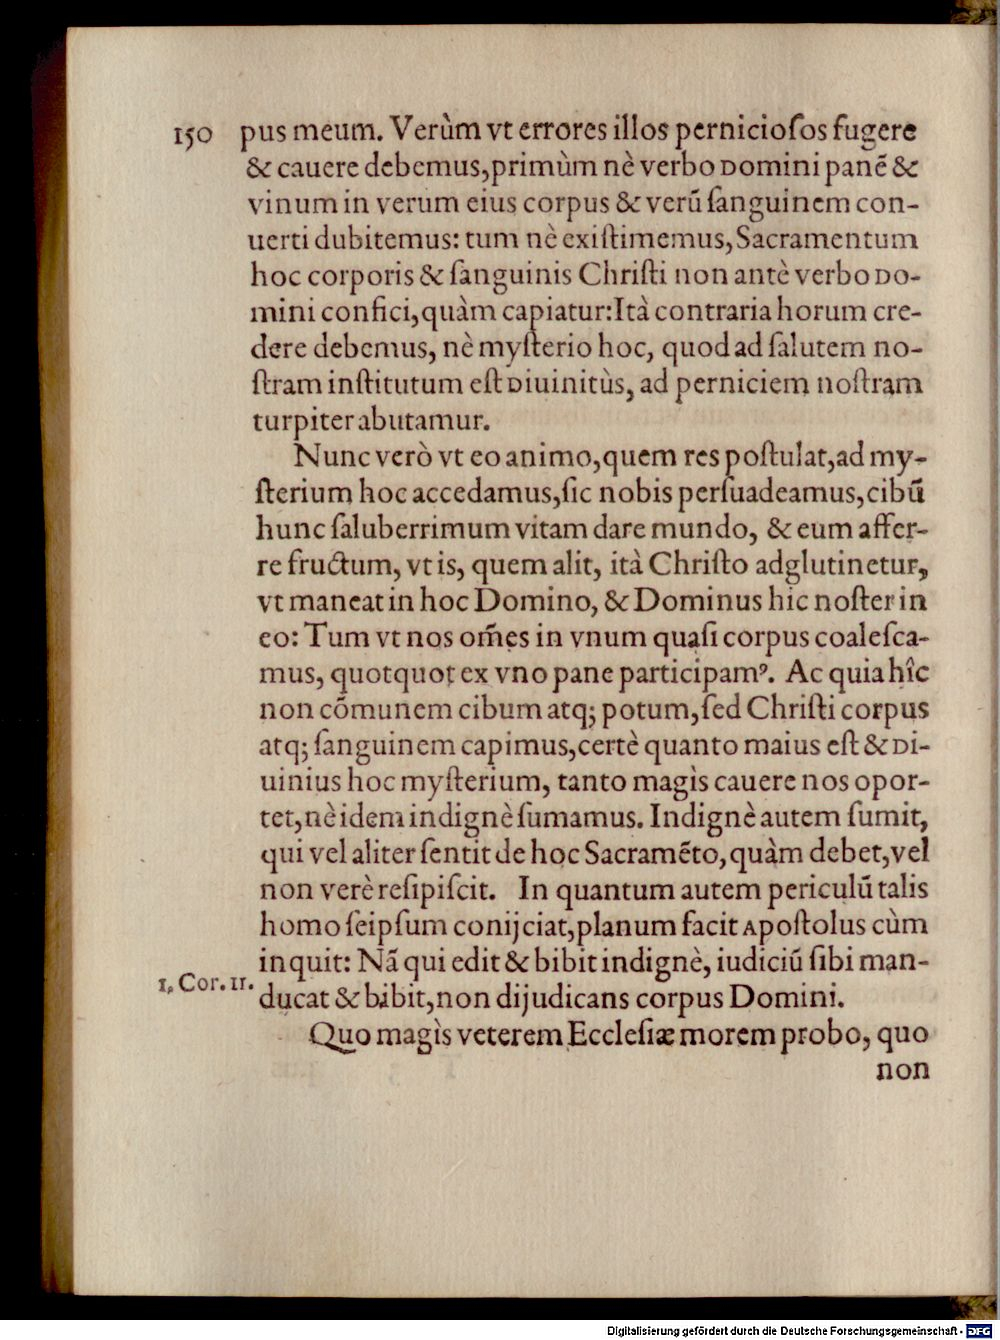 150 pus meum. Verùm vt errores illos pernicioſos fugere
& cauere debemus, primùm nè verbo Domini panē &
vinum in verum eius corpus & verū ſanguinem con-
uerti dubitemus: tum nè exiſtimemus, Sacramentum
hoc corporis & ſanguinis Chriſti non antè verbo Do-
mini confici, quàm capiatur: Ità contraria horum cre-
dere debemus, nè myſterio hoc, quod ad ſalutem no-
ſtram inſtitutum eſt Diuinitùs, ad perniciem noſtram
turpiter abutamur.
Nunc verò vt eo animo, quem res poſtulat, ad my-
ſterium hoc accedamus, ſic nobis perſuadeamus, cibū
hunc ſaluberrimum vitam dare mundo, & eum affer-
re fructum, vt is, quem alit, ità Chriſto adglutinetur,
vt maneat in hoc Domino, & Dominus hic noſter in
eo: Tum vt nos om̄es in vnum quaſi corpus coaleſca-
mus, quotquot ex vno pane participamꝰ. Ac quia hîc
non cōmunem cibum atq; potum, ſed Chriſti corpus
atq; ſanguinem capimus, certè quanto maius eſt & Di-
uinius hoc myſterium, tanto magìs cauere nos opor-
tet, nè idem indignè ſumamus. Indignè autem ſumit,
qui vel aliter ſentit de hoc Sacramēto, quàm debet, vel
non verè reſipiſcit. In quantum autem periculū talis
homo ſeipſum conijciat, planum facit Apoſtolus cùm
inquit: Nā qui edit & bibit indignè, iudiciū ſibi man-
1. Cor. 11.
ducat & bibit, non dijudicans corpus Domini.
Quo magìs veterem Eccleſiæ morem probo, quo
non
Digitalisierung gefördert durch die Deutsche Forschungsgemeinschaft - DFG